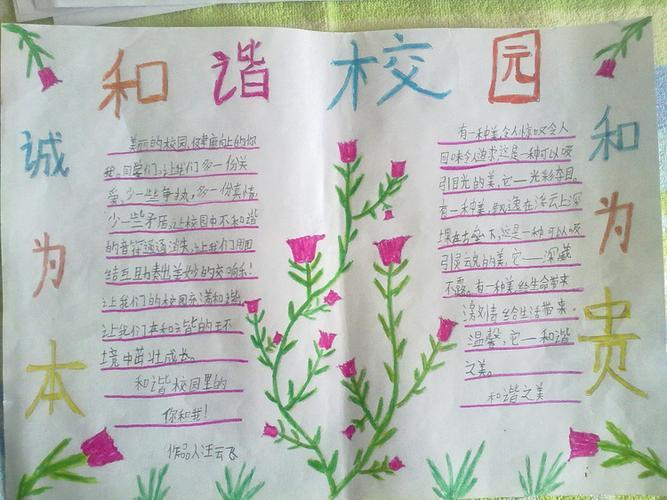 和谐校园
诚为本
和为贵
美丽的校园,健康向上的你
我。同学们,让我们多一份关
爱,少一些争执,多一份真情,
少一些矛盾。让校园中不和谐
的音符通通消失,让我们用团
结互助奏出美妙的交响乐!
让我们的校园充满和谐,
让我们在和谐的环
境中茁壮成长。
和谐校园里的
你和我!
作品人汪云飞
有一种美令人惊叹令人
回味令人追求这是一种可以吸
引目光的美,它——光彩夺目。
有一种美,飘逸在浮云上深
埋在古垒下,这是一种可以吸
引灵魂的美,它——深藏
不露。有一种美给生命带来
激情给生活带来
温馨,它——和谐
之美。
和谐之美